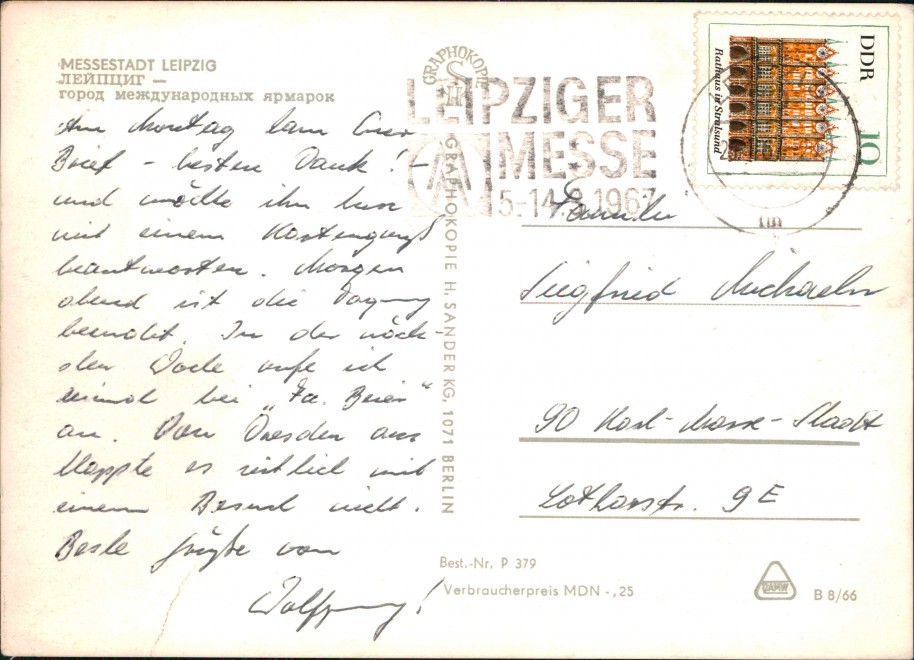 MESSESTADT LEIPZIG
ЛЕЙПЦИГ —
город международных ярмарок
Am Montag kam Euer
Brief - besten Dank! -
und möchte ihn kurz
mit einem Kartengruß
beantworten. Morgen
abend ist die Tagung
beendet. In der näch-
sten Woche rufe ich
einmal bei "Fa. Beier"
an. Von Dresden aus
klappte es zeitlich mit
einem Besuch nicht.
Beste Grüße von
Wolfgang!
GRAPHOKOPIE
GRAPHOKOPIE H. SANDER KG, 1071 BERLIN
LEIPZIGER
MESSE
5.-14.9.1967
DDR
10
Rathaus in Stralsund
Familie
Siegfried
90 Karl-Marx-Stadt
Lotharstr. 9E
Best.-Nr. P 379
Verbraucherpreis MDN -,25
DAMW
B 8/66